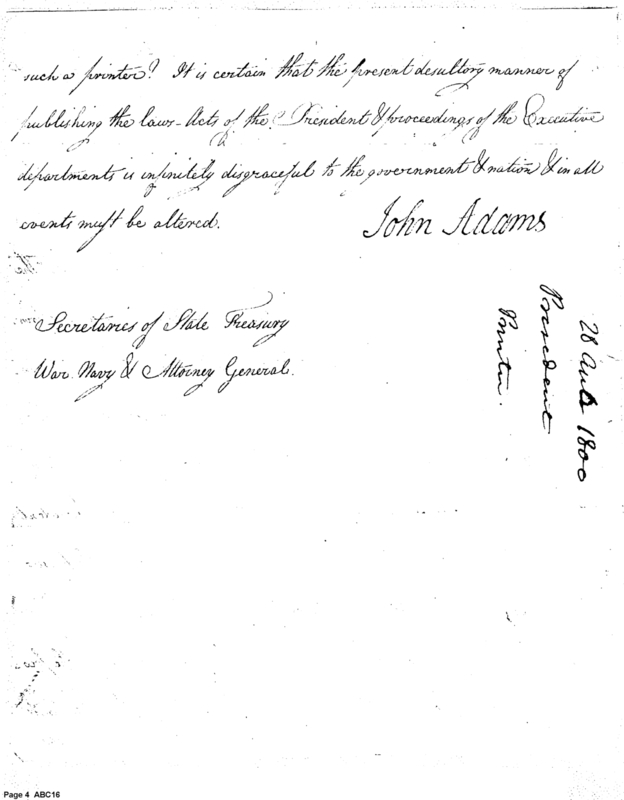 such a printer? It is certain that the present desultory manner of
publishing the laws - Acts of the President & proceedings of the Executive
departments is infinitely disgraceful to the government & nation & in all
events must be altered.
John Adams
Secretaries of State Treasury
War Navy & Attorney General.
28 Aug 1800
President
Printer.
Page 4 ABC16